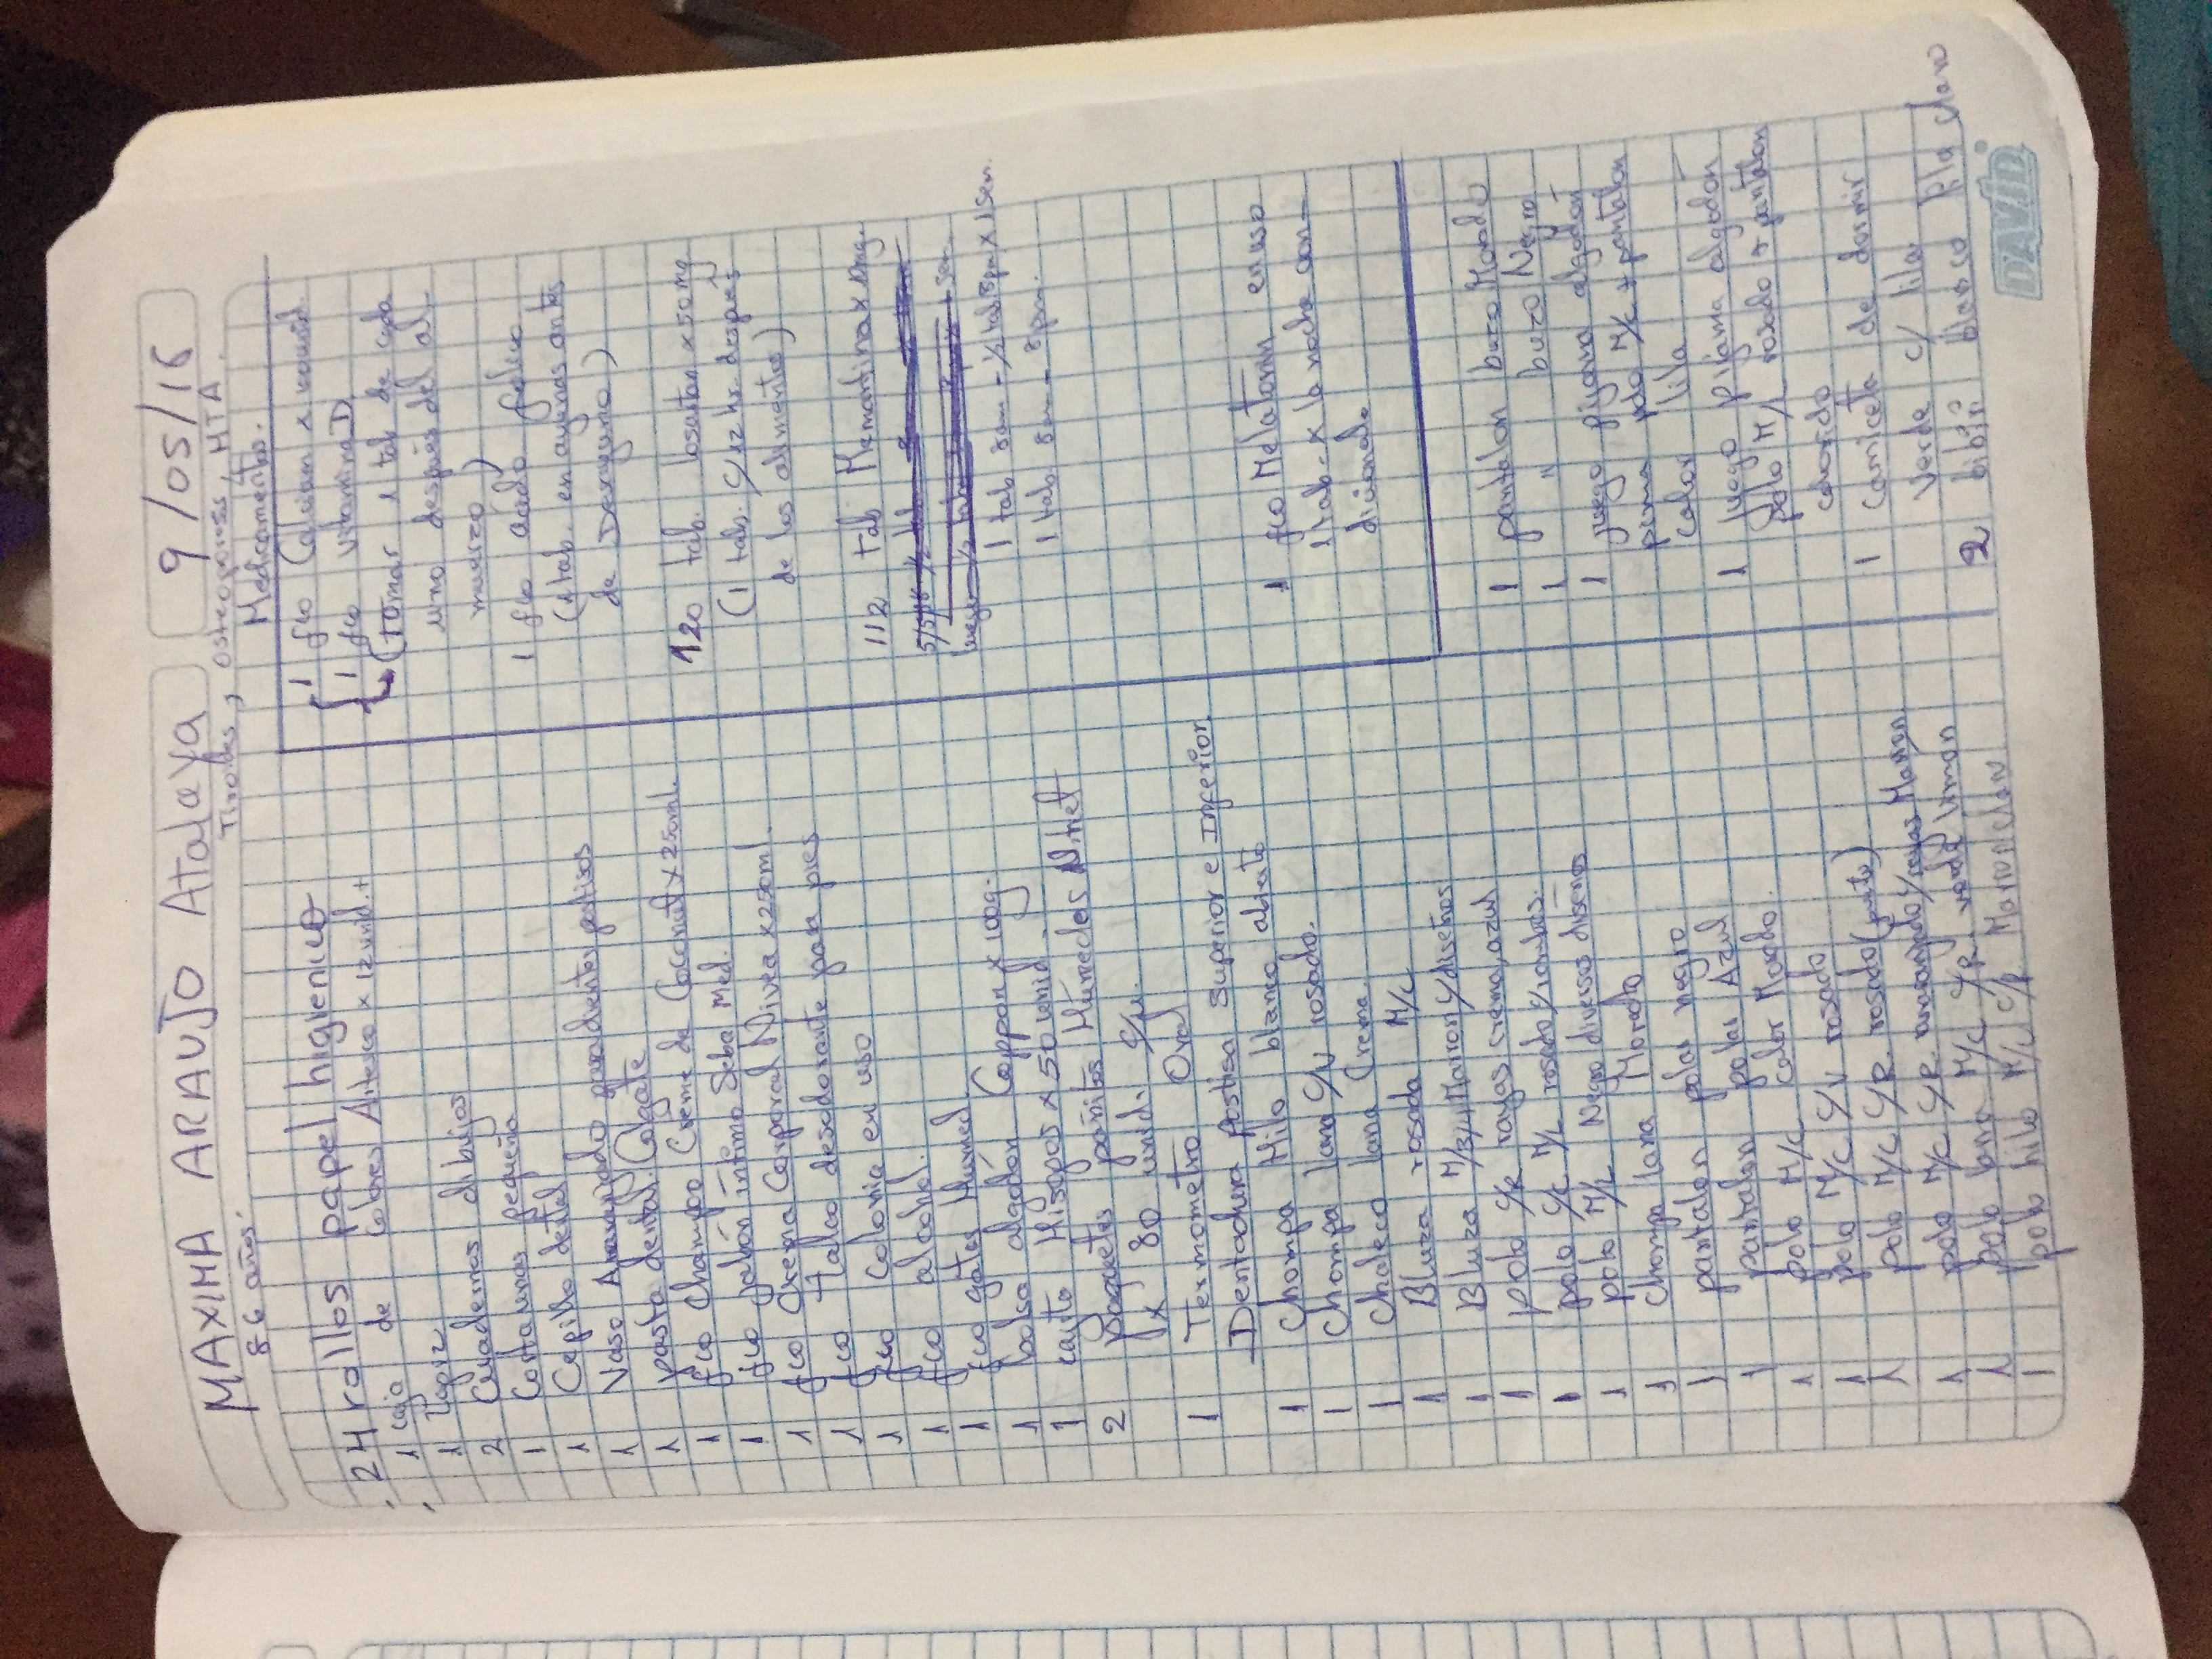 MAXIMA ARAUJO Atalaya 9/05/16
86 años. Tiroides, osteoporosis, HTA.
24 rollos papel higienico
1 caja de colores Artesco x 12 unid. +
1 lapiz
2 Cuadernos dibujos
1 Cartuchera pequeña
1 Cepillo dental
1 Vaso Anaranjado guardadientes postisos
1 pasta dental Colgate
1 fco Champoo Creme de Coconut x 250ml.
1 fco jabón intimo Seba Med.
1 fco Crema Corporal Nivea x 250ml.
1 fco talco desodorante para pies
1 fco Colonia en uso
1 fco alcohol.
1 fco gotas Humed
1 bolsa algodón Coppon x 100g.
1 cajita Hisopos x 50 unid.
2 paquetes pañitos Húmedos Ninet
x 80 unid. c/u.
1 Termometro Oral
Dentadura Postisa Superior e Inferior
1 Chompa Hilo blanco abierto
1 Chompa lana c/v rosado.
1 Chaleco lana Crema
1 Bluza rosada M/c
1 Bluza M/3/4 Marron c/diseños
1 polo c/R rayas crema, azul
1 polo c/c M/L rosado c/rombos.
1 polo M/L Negro diversos diseños
1 Chompa lana Morado
1 pantalon polar negro
1 pantalon polar Azul
1 polo M/c color Morado.
1 polo M/c c/v rosado
1 polo M/c c/R rosado (punto)
1 polo M/c c/R anaranjado c/rayas Marron
1 polo lana M/c c/R verde limon
1 polo hilo M/c c/R
Medicamentos.
1 fco Calcium x
1 fco vitamina D
(tomar 1 tab de cada
uno después del al-
muerzo)
1 fco ácido folico
(1 tab. en ayunas antes
de Desayuno)
120 tab. losartan x 50 mg.
(1 tab. c/12 hr. después
de los alimentos)
112 tab Memantina x 10mg.
1 tab 8am - 1/2 tab 8pm x 1 sem.
1 tab 8am - 8pm.
1 fco Melatonin en uso
1 tab - x la noche con-
dicionado
1 pantalon buzo Morado
1 " buzo Negro
1 juego pijama algodón
pima polo M/c + pantalon
color lila
1 juego pijama algodón
polo M/L rosado + pantalon
colorido
1 Camiceta de dormir
verde c/ lila
2 bibiri blanco
DAVID